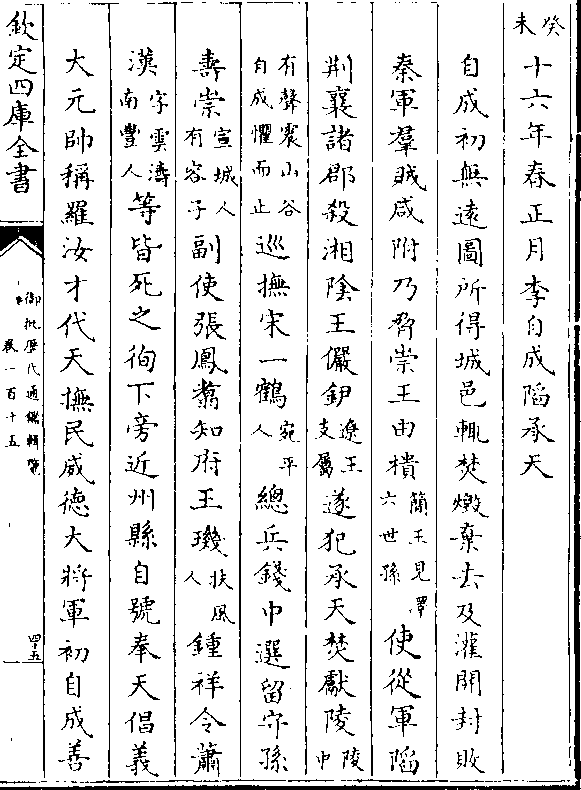 癸未十六年春正月李自成陷承天
自成初無遠圖所得城邑輒焚燬棄去及灌開封敗
秦軍羣賊咸附乃脅崇王由樻簡王見澤六世孫使從軍陷
荆襄諸郡殺湘陰王儼遼王支屬遂犯承天焚獻陵陵中
有聲震山谷自成懼而止巡撫宋一鶴宛平人總兵錢中選留守孫
壽崇宣城人有容子副使張鳳翥知府王璣扶風人鍾祥令蕭
漢字雲濤南豐人等皆死之徇下旁近州縣自號奉天倡義
大元帥稱羅汝才代天撫民威德大將軍初自成善
欽定四庫全書
御批歷代通鑑輯覽
卷一百十五
四十五